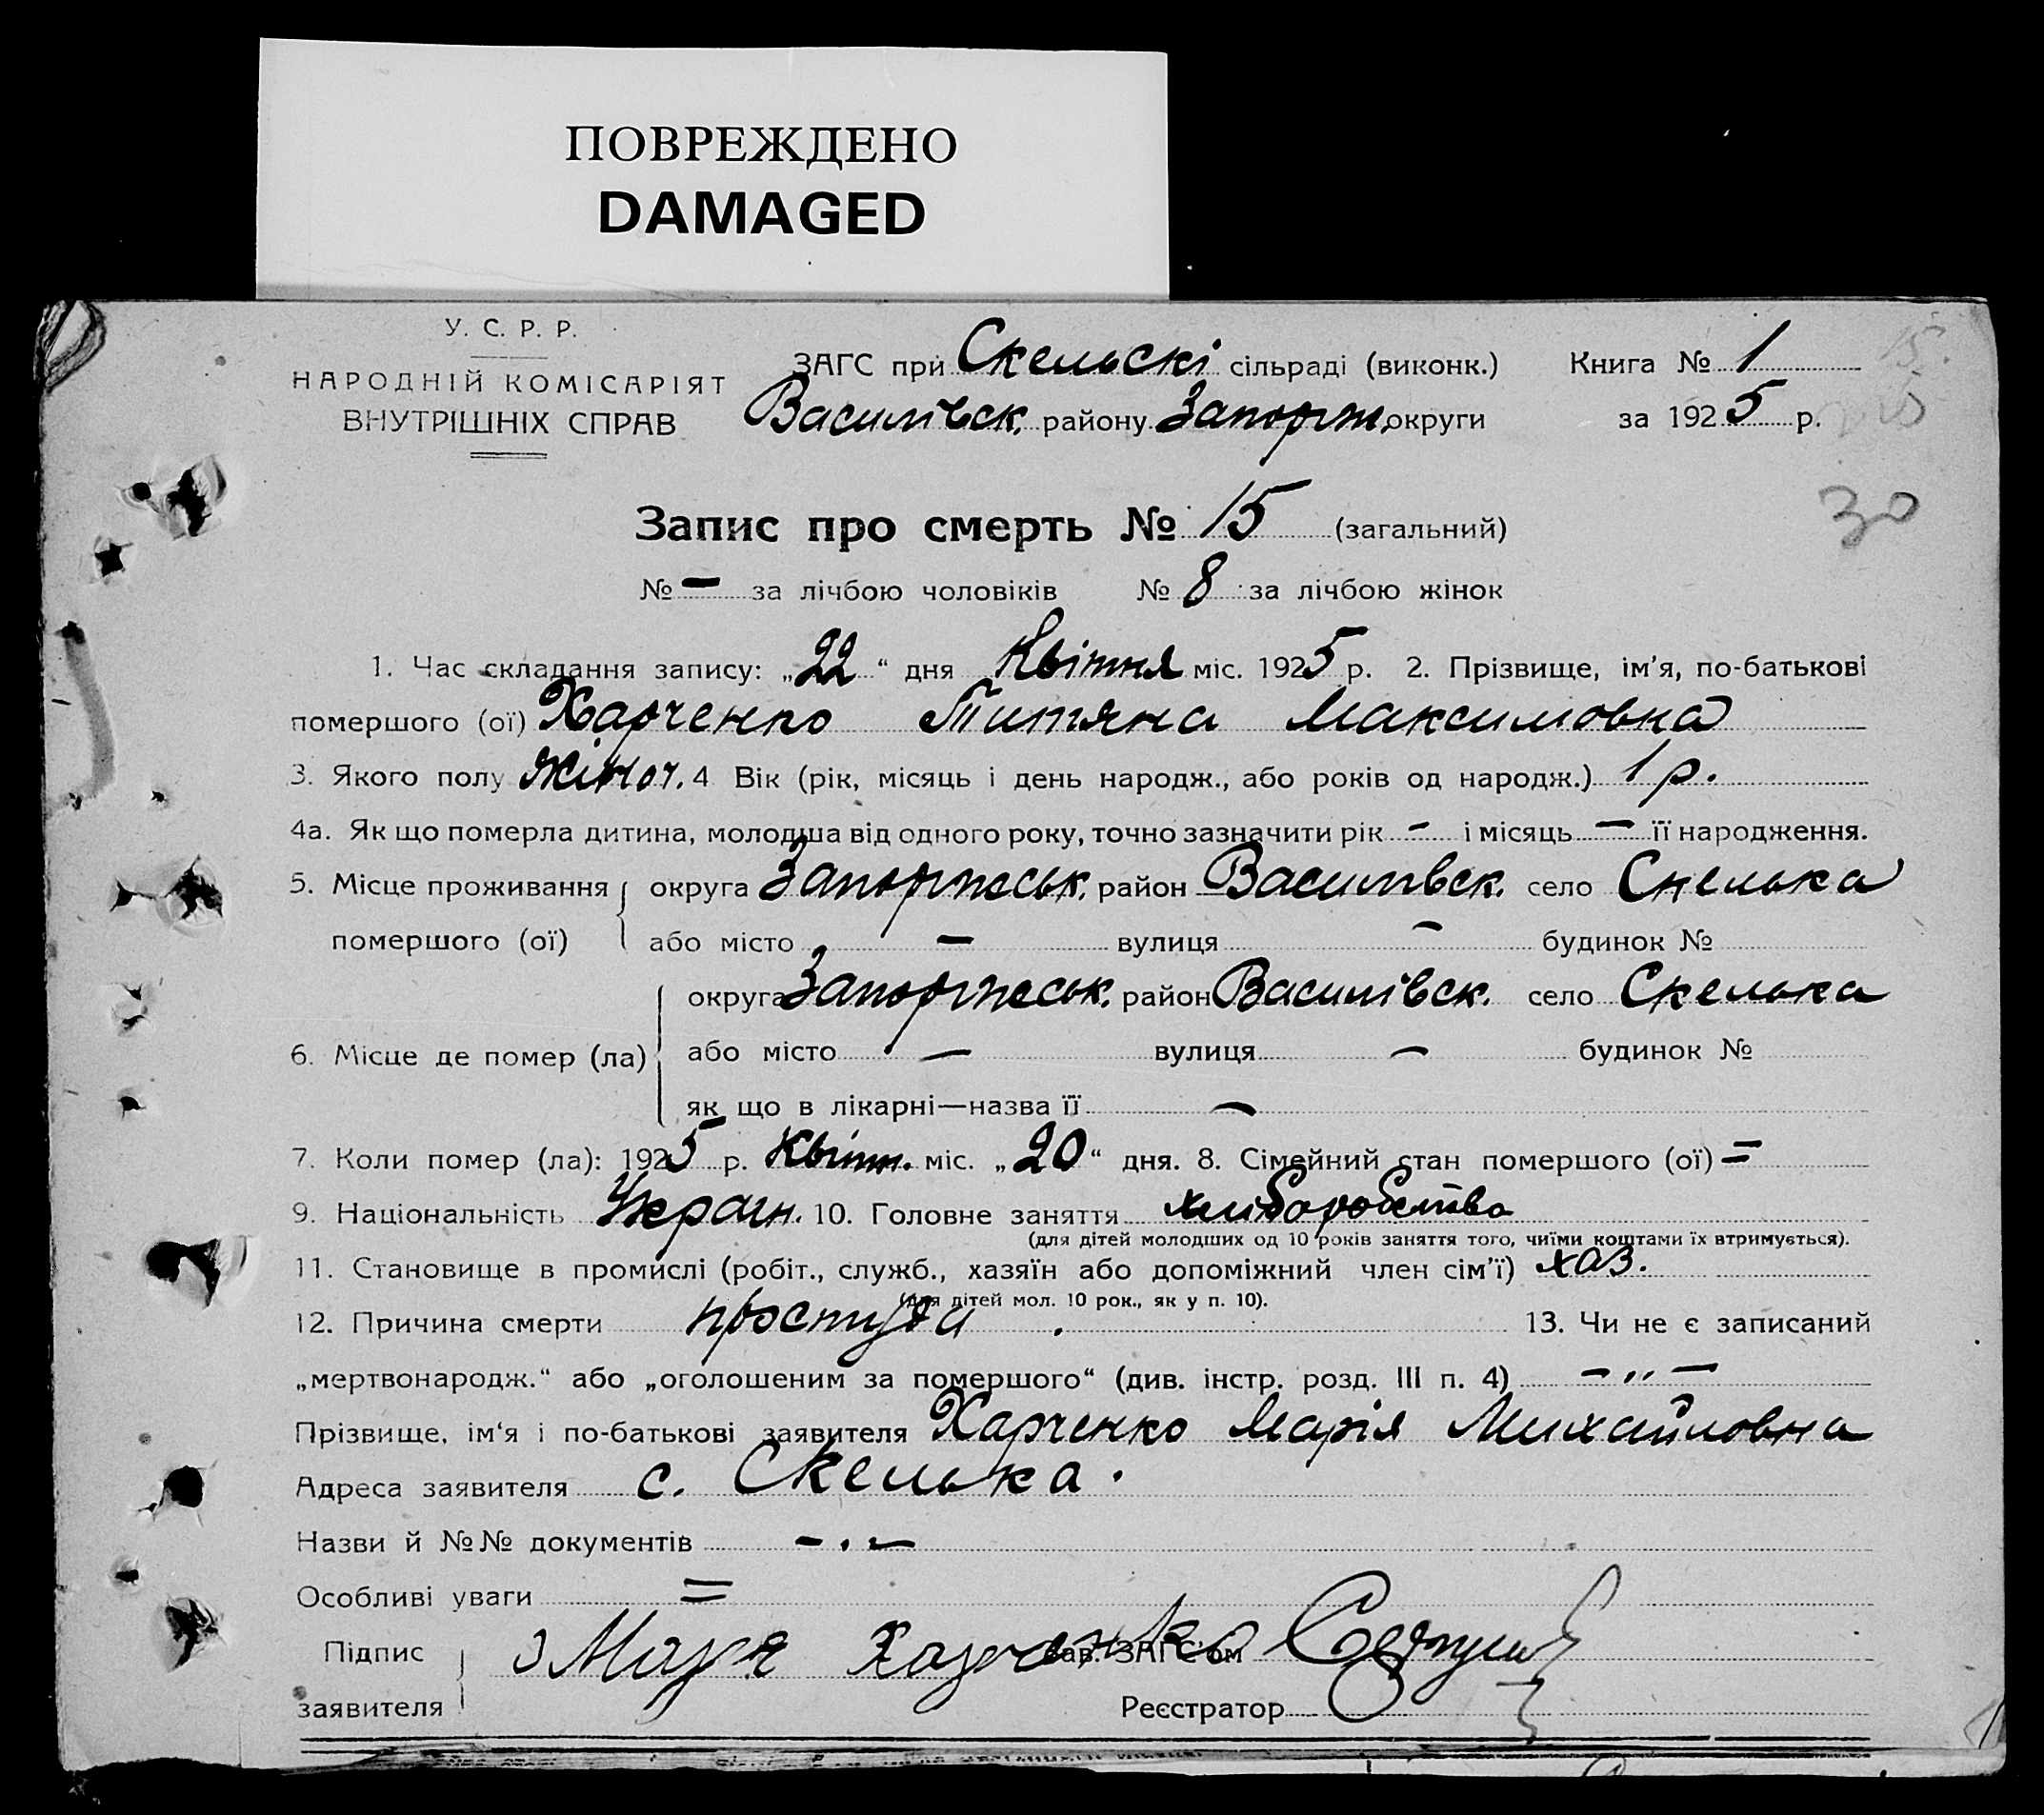 ПОВРЕЖДЕНО
DAMAGED
У. С. Р. Р.
НАРОДНІЙ КОМІСАРІЯТ
ВНУТРІШНІХ СПРАВ
ЗАГС при Скельскі сільраді (виконк.) Книга № 1
Василівск. району Запорож. округи за 1925 р.
15.
30
Запис про смерть № 15 (загальний)
№ — за лічбою чоловіків № 8 за лічбою жінок
1. Час складання запису: „22“ дня Квітня міс. 1925 р. 2. Прізвище, ім’я, по-батькові
помершого (ої) Харченко Титяна Максимовна
3. Якого полу жіноч. 4 Вік (рік, місяць і день народж., або років од народж.) 1 р.
4а. Як що померла дитина, молодша від одного року, точно зазначити рік — і місяць — її народження.
5. Місце проживання округа Запоріжськ. район Василівск. село Скелька
помершого (ої) або місто — вулиця — будинок №
округа Запоріжськ. район Василівск. село Скелька
6. Місце де помер (ла) або місто — вулиця — будинок №
як що в лікарні—назва її —
7. Коли помер (ла): 1925 р. Квітн. міс. „20“ дня. 8. Сімейний стан помершого (ої) =
9. Національність Украін. 10. Головне заняття хліборобство
(для дітей молодших од 10 років заняття того, чиїми коштами їх втримується).
11. Становище в промислі (робіт., служб., хазяїн або допоміжний член сім’ї) хаз.
(для дітей мол. 10 рок., як у п. 10).
12. Причина смерти простуда. 13. Чи не є записаний
„мертвонародж.“ або „оголошеним за помершого“ (див. інстр. розд. III п. 4) — „ —
Прізвище, ім‘я і по-батькові заявителя Харченко Марія Михайловна
Адреса заявителя с. Скелька.
Назви й №№ документів — . —
Особливі уваги =
Підпис Маря Харченко Зав. ЗАГС’ом
заявителя Реєстратор